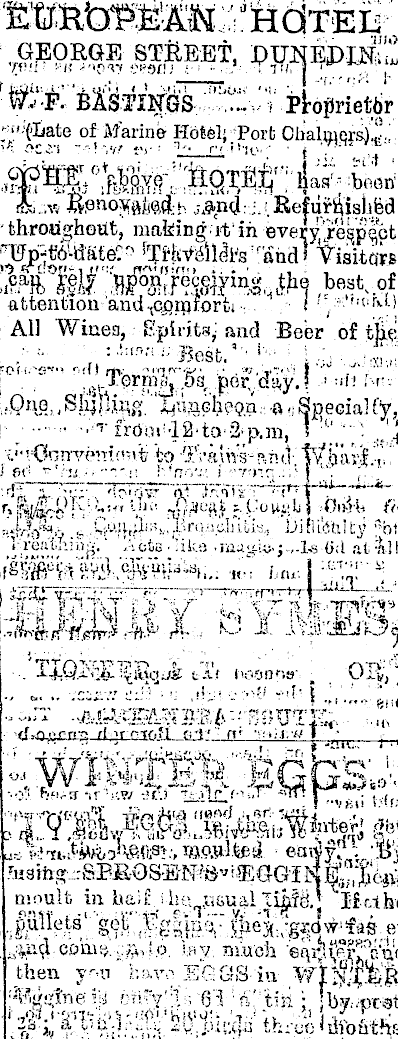 EUROPEAN HOTEL
GEORGE STREET, DUNEDIN.
W. F. BASTINGS Proprietor
(Late of Marine Hotel, Port Chalmers).
THE above HOTEL has been
Renovated and Refurnished
throughout, making it in every respect
Up-to-date. Travellers and Visitors
can rely upon receiving the best of
attention and comfort.
All Wines, Spirits, and Beer of the
Best.
Terms, 5s per day.
One Shilling Luncheon a Specialty,
from 12 to 2 p.m,
Convenient to Trains and Wharf.
the Great Cough Cure fo
Coughs, Bronchitis, Difficulty of
Breathing. Acts like magic; 1s 6d at all
grocers and chemists.
HENRY SYMES,
ALEXANDRA SOUTH
WINTER EGGS.
EGGS in the Winter
the hens moulted early. By
using SPROSEN'S EGGINE hens
moult in half the usual time. If the
pullets get Eggine they grow fas
and come in to lay much earlier and
then you have EGGS in WINTER
Eggine is only 1s 6d a tin; by post
2s; a tin lasts 20 birds three months